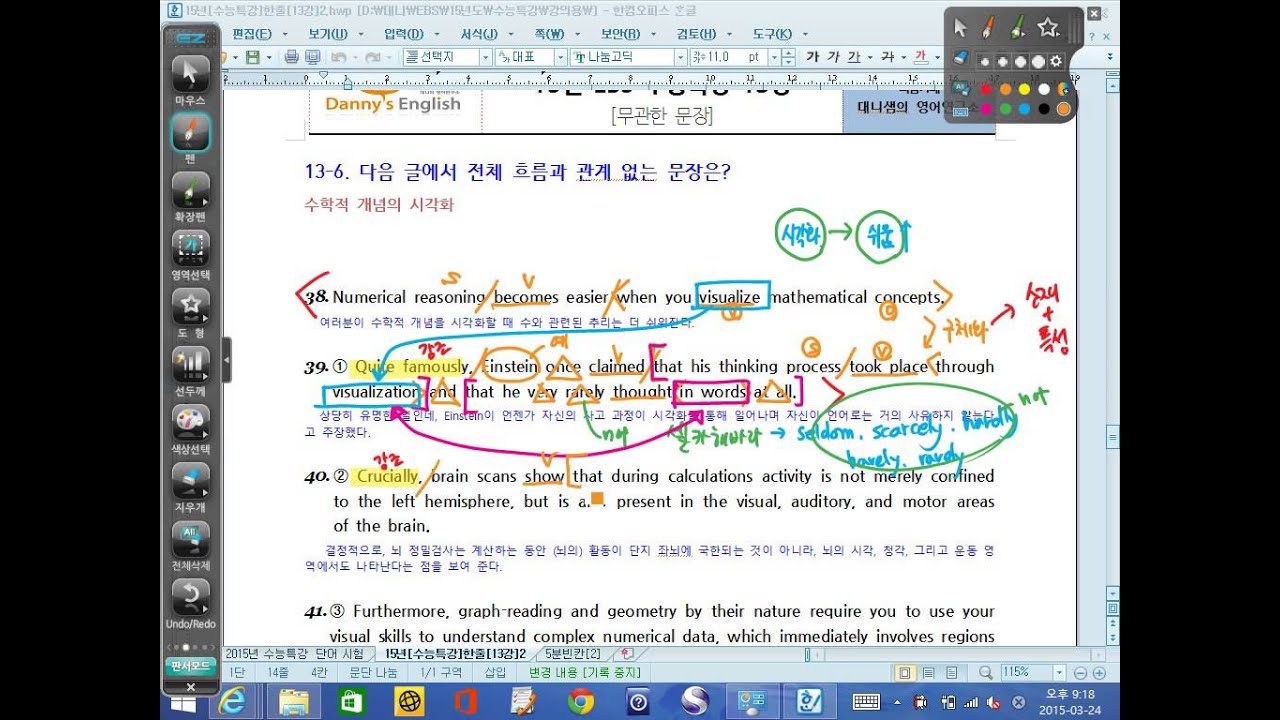 15년[수능특강]한줄[13강]2.hwp [D:₩대니₩EBS₩15년도₩수능특강₩강의용₩] - 한컴오피스 한글
편집(E) 보기(U) 입력(D) 서식(J) 쪽(W) 보안(R) 검토(H) 도구(K)
선택지 대표 나눔고딕 11.0 pt 가 가 가 가 가
EZ
마우스
펜
확장펜
영역선택
도 형
선두께
색상선택
지우개
전체삭제
Undo/Redo
판서모드
Danny's English
[무관한 문장]
대니샘의 영어연구소
13-6. 다음 글에서 전체 흐름과 관계 없는 문장은?
수학적 개념의 시각화
시각화 → 쉬움 ↑
S V
38. Numerical reasoning becomes easier when you visualize mathematical concepts.
여러분이 수학적 개념을 시각화할 때 수와 관련된 추리는 더 쉬워진다.
구체화
+
특성
강조 예 V S V
39. ① Quite famously, Einstein once claimed that his thinking process took place through
visualization and that he very rarely thought in words at all.
상당히 유명한 Einstein이 언젠가 자신의 사고 과정이 시각화를 통해 일어나며 자신이 언어로는 거의 사유하지 않는다
고 주장했다.
not
not → seldom. scarcely. hardly
barely. rarely
강조 V
40. ② Crucially, brain scans show that during calculations activity is not merely confined
to the left hemisphere, but is present in the visual, auditory, and motor areas
of the brain.
결정적으로, 뇌 정밀검사는 계산하는 동안 (뇌의) 활동이 단지 좌뇌에 국한되는 것이 아니라, 뇌의 시각, 청각, 그리고 운동 영
역에서도 나타난다는 점을 보여 준다.
41. ③ Furthermore, graph-reading and geometry by their nature require you to use your
visual skills to understand complex numerical data, which immediately involves regions
2015년 수능특강 단어 시험 15년[수능특강]한줄[13강]2 5분빈칸[2]
1단 14줄 4칸 문단 나눔 1/1 구역 삽입 변경 내용 [기록 중지] 115%
오후 9:18
2015-03-24